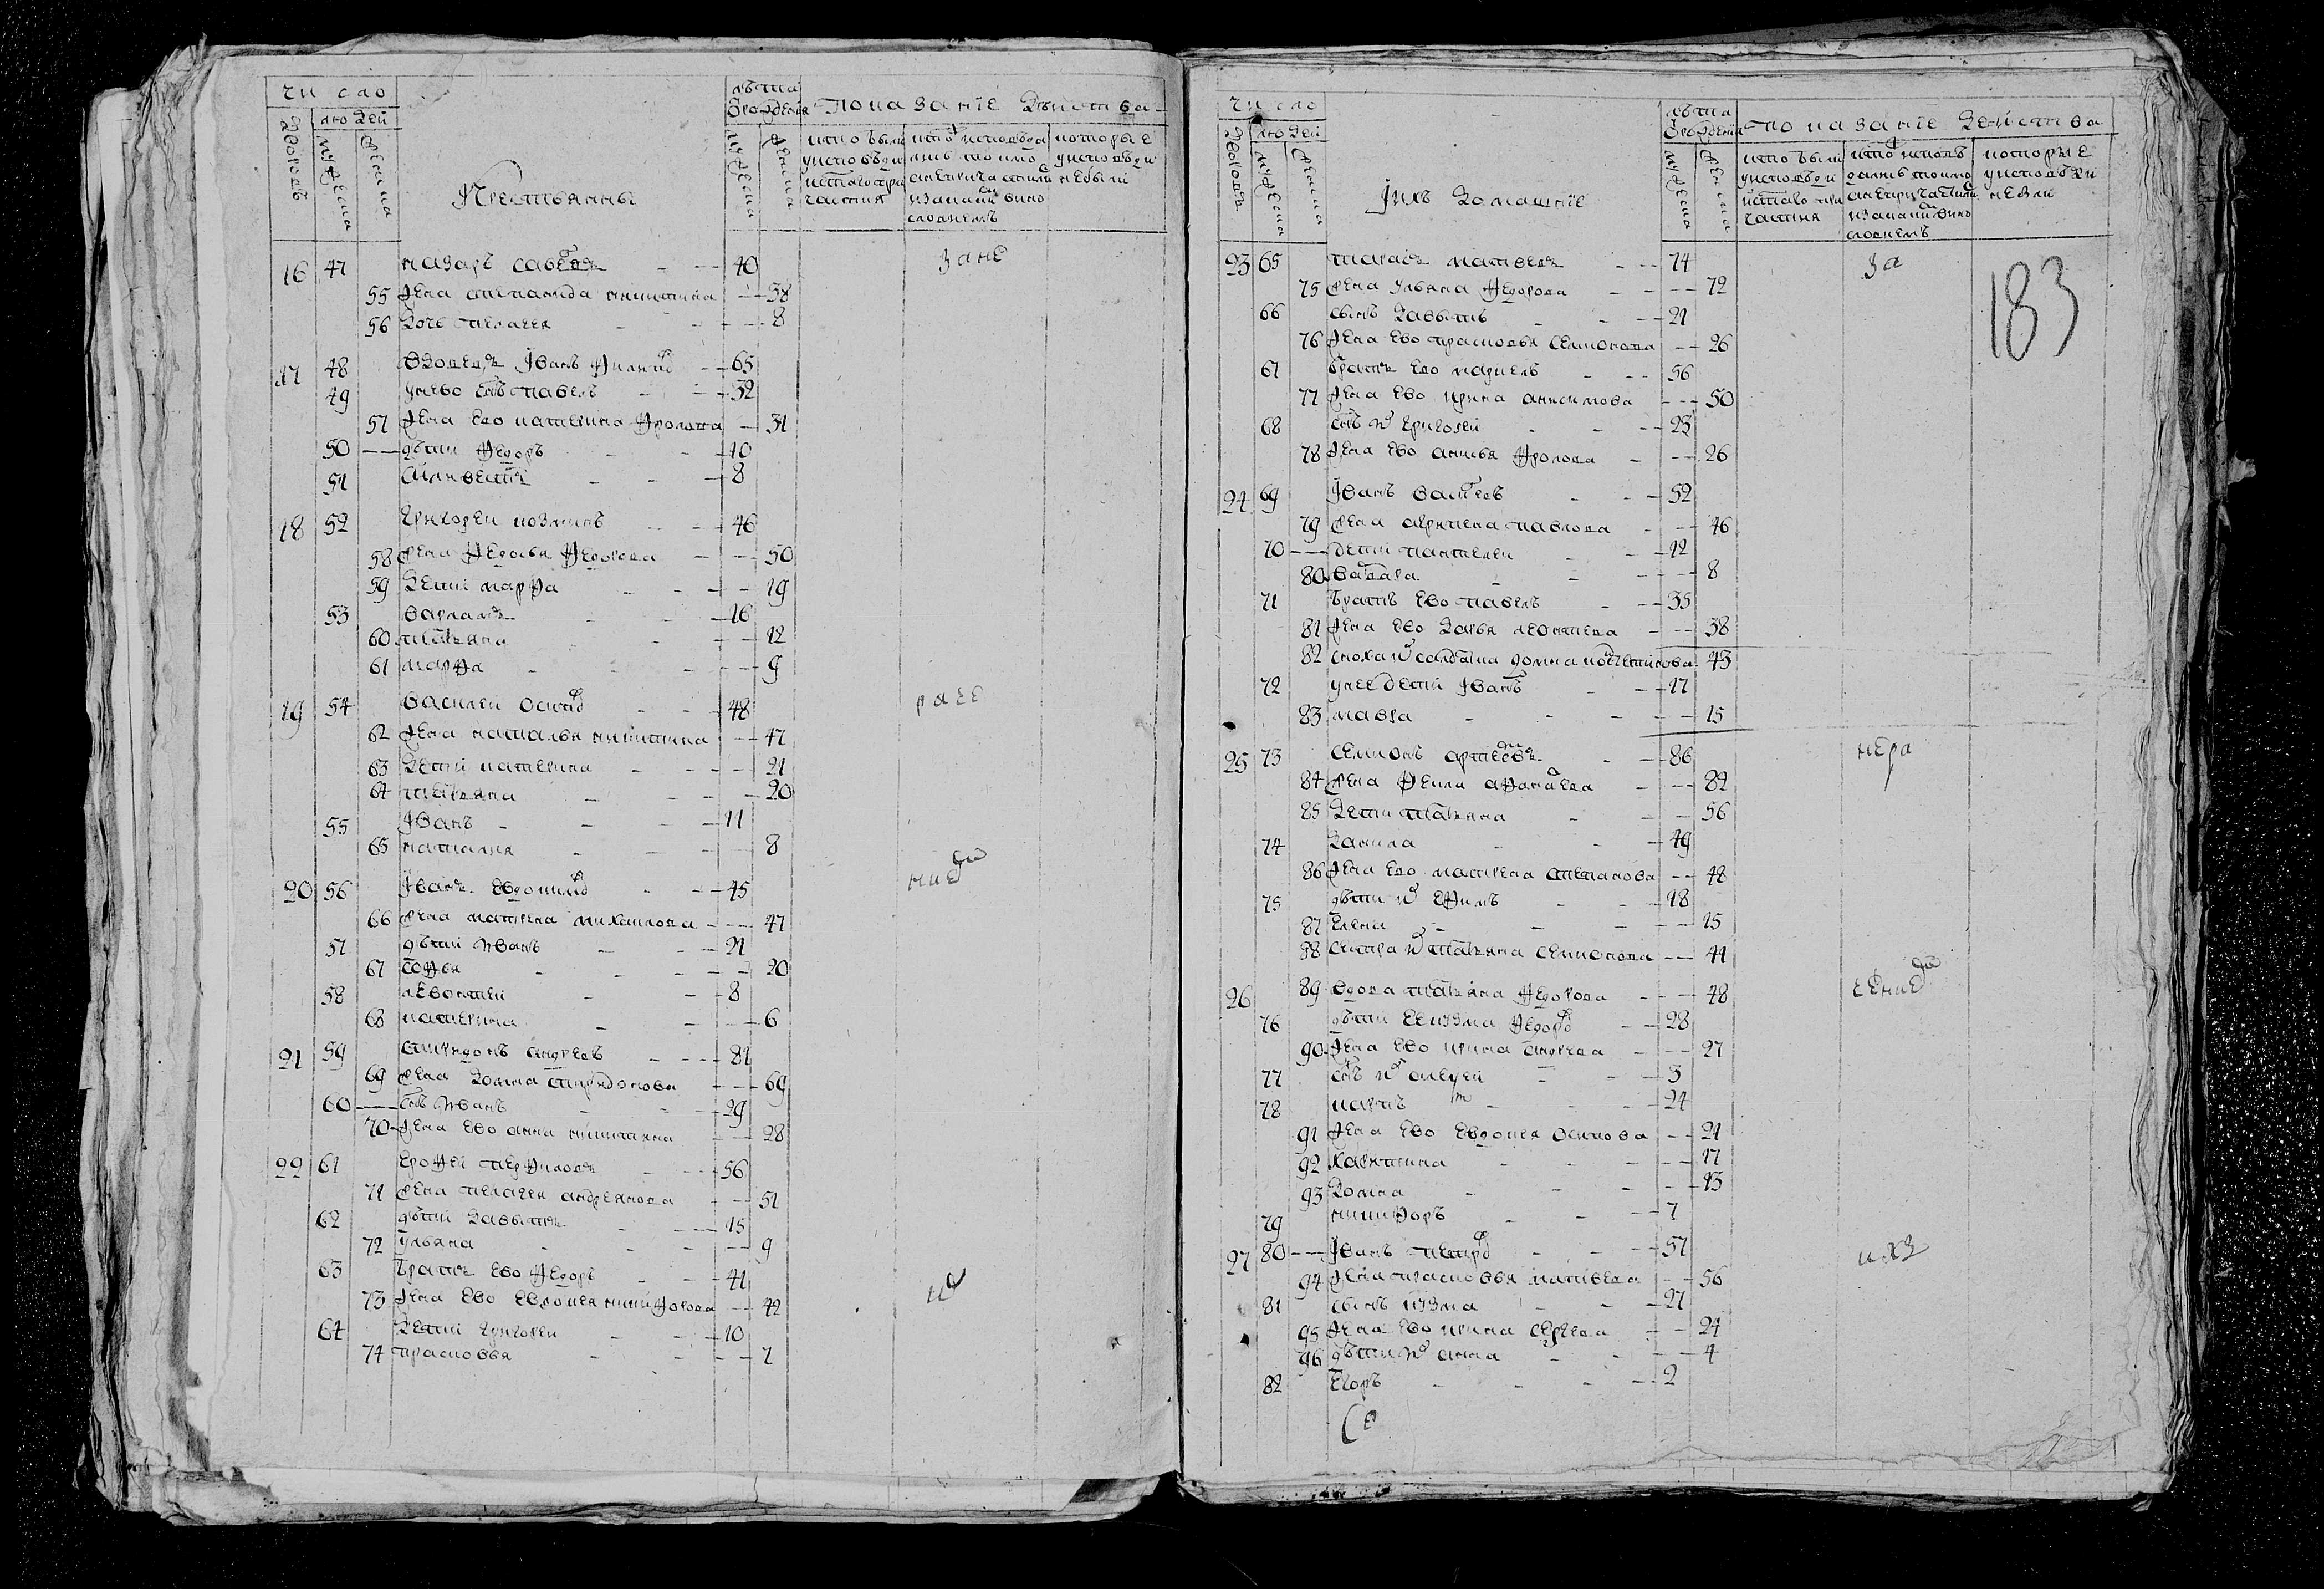 число
людей
дворовъ
мужеска
женска
Крестьянны
лѣта
ѿрождения
мужеска
женска
показаніе действа
кто были
уисповѣди
исвятаго при
частия
кто исповѣда
лись токмо
анепричастили
изакаким вино
словиемъ
которые
уисповѣди
небыли
16 47 назаръ савелевъ 40 зане
55 жена степанида никитина 38
56 дочь пелагея 8
17 48 вдовецъ Іванъ филипов 65
49 унево снъ павелъ 32
57 жена ево катерина фролова 31
50 дѣти федоръ 10
51 силивестръ 8
18 52 григореи козминъ 46
58 жена федосья федорова 50
59 дети марфа 19
53 варламъ 16
60 татьяна 12
61 марфа 9
19 54 василеи осипов 48 раче
62 жена наталья никитина 47
63 дети катерина 21
64 татьяна 20
55 Іванъ 11
65 наталья 8
20 56 Іванъ евдокимов 45
66 жена матрена михаилова 47
57 дѣти иванъ 21
67 софья 20
58 левонтеи 8
68 катерина 6
21 59 спиридонъ андреевъ 81
69 жена домна спиридонова 69
60 снъ иванъ 29
70 жена ево анна никитина 28
22 61 ерофеи перфиловъ 56
71 жена пелагея андреянова 51
62 дѣти давыдъ 15
72 ульяна 9
63 братъ ево федоръ 41
73 жена ево евдокея никифорова 42
64 дети григореи 10
74 прасковья 7
число
людей
дворовъ
мужеска
женска
Іихъ домашніе
лѣта
ѿрождения
мужеска
женска
показаніе действа
кто были
уисповѣди
исвятаго при
частия
кто исповѣ
дались токмо
анепричастили
изакаким вино
словиемъ
которые
уисповѣди
небыли
183
23 65 тарасъ матвеевъ 74 за
75 жена ульяна федорова 72
66 сынъ давыдъ 21
76 жена ево прасковья семионова 26
67 братъ ево маркелъ 56
77 жена ево ирина анисимова 50
68 снъ их григорей 23
78 жена ево анисья фролова 26
24 69 Іванъ василевъ 52
79 жена агрипена павлова 46
70 дети пантелеи 12
80 варвара 8
71 братъ ево павелъ 35
81 жена ево дарья леонтева 38
82 сноха их солдатка домна 43
72 унее дети Іванъ 17
83 мавра 15
25 73 семионъ артемевъ 86 нера
84 жена фекла афонасева 82
85 дети татьяна 56
74 данила 49
86 жена ево матрена степанова 48
75 дѣти их ефимъ 18
87 елена 15
88 сестра их татьяна семионова 41
26 89 вдова татьяна федорова 48
76 дѣти козма федоров 28
90 жена ево ирина андреева 27
77 снъ их алексей 3
78 карпъ 24
91 жена ево евдокея осипова 21
92 харитина 17
93 домна 13
79 никифоръ 7
27 80 Іванъ петров 51
94 жена прасковья матвеева 56
81 сынъ козма 27
95 жена ево ирина сергеева 24
96 дѣти их анна 4
82 егоръ 2